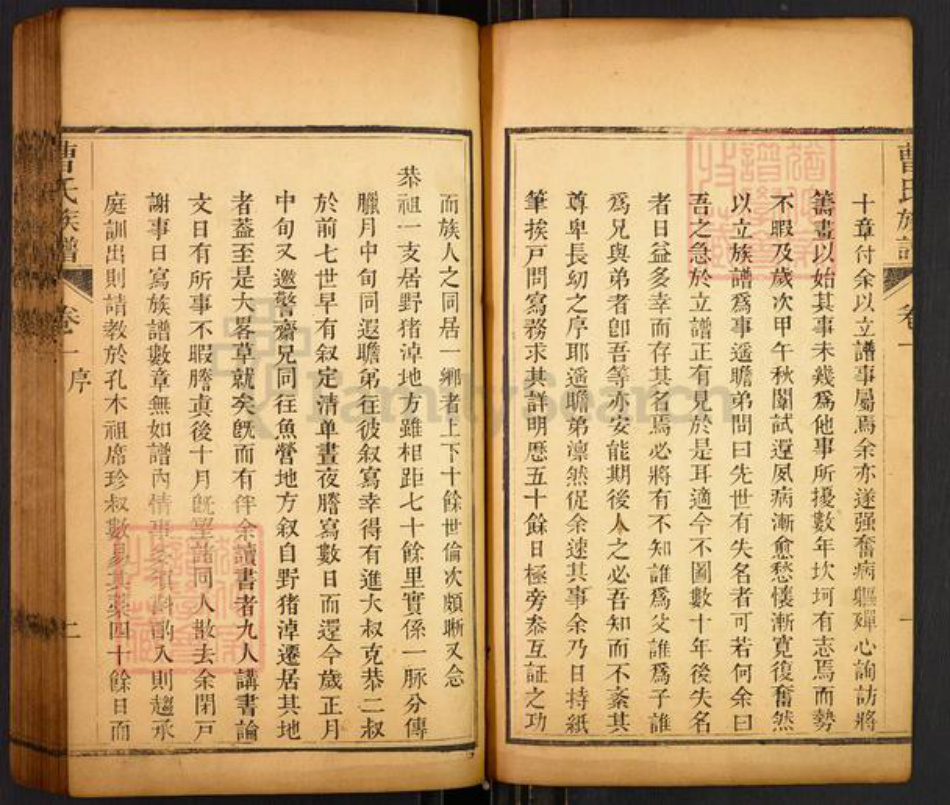 曹氏族譜 卷一 一
十章付余以立譜事屬焉余亦遂强奮病軀殫心詢訪將
籌畫以始其事未幾爲他事所擾數年坎坷有志焉而勢
不暇及歲次甲午秋闈試還夙病漸愈愁懷漸寛復奮然
以立族譜爲事遥瞻弟問曰先世有失名者可若何余曰
吾之急於立譜正有見於是耳適今不圖數十年後失名
者日益多幸而存其名焉必將有不知誰爲父誰爲子誰
爲兄與弟者卽吾等亦安能期後人之必吾知而不紊其
尊卑長幼之序耶遥瞻弟凛然促余速其事余乃日持紙
筆挨戸問寫務求其詳明歷五十餘日極旁叅互証之功
而族人之同居一鄉者上下十餘世倫次頗晰又念
恭祖一支居野猪淖地方雖相距七十餘里實係一脈分傳
臘月中旬同遐瞻弟往彼叙寫幸得有進大叔克恭二叔
於前七世早有叙定清单晝夜謄寫數日而還今歲正月
中旬又邀警齋兄同往魚營地方叙自野猪淖遷居其地
者葢至是大畧草就矣旣而有伴余讀書者九人講書論
文日有所事不暇謄眞後十月旣望諸同人散去余閉戸
謝事日寫族譜數章無如譜內情事 酌入則趨承
庭訓出則請教於孔木祖席珍叔數易其藁四十餘日而
曹氏族譜 卷一 序 二
FamilySearch